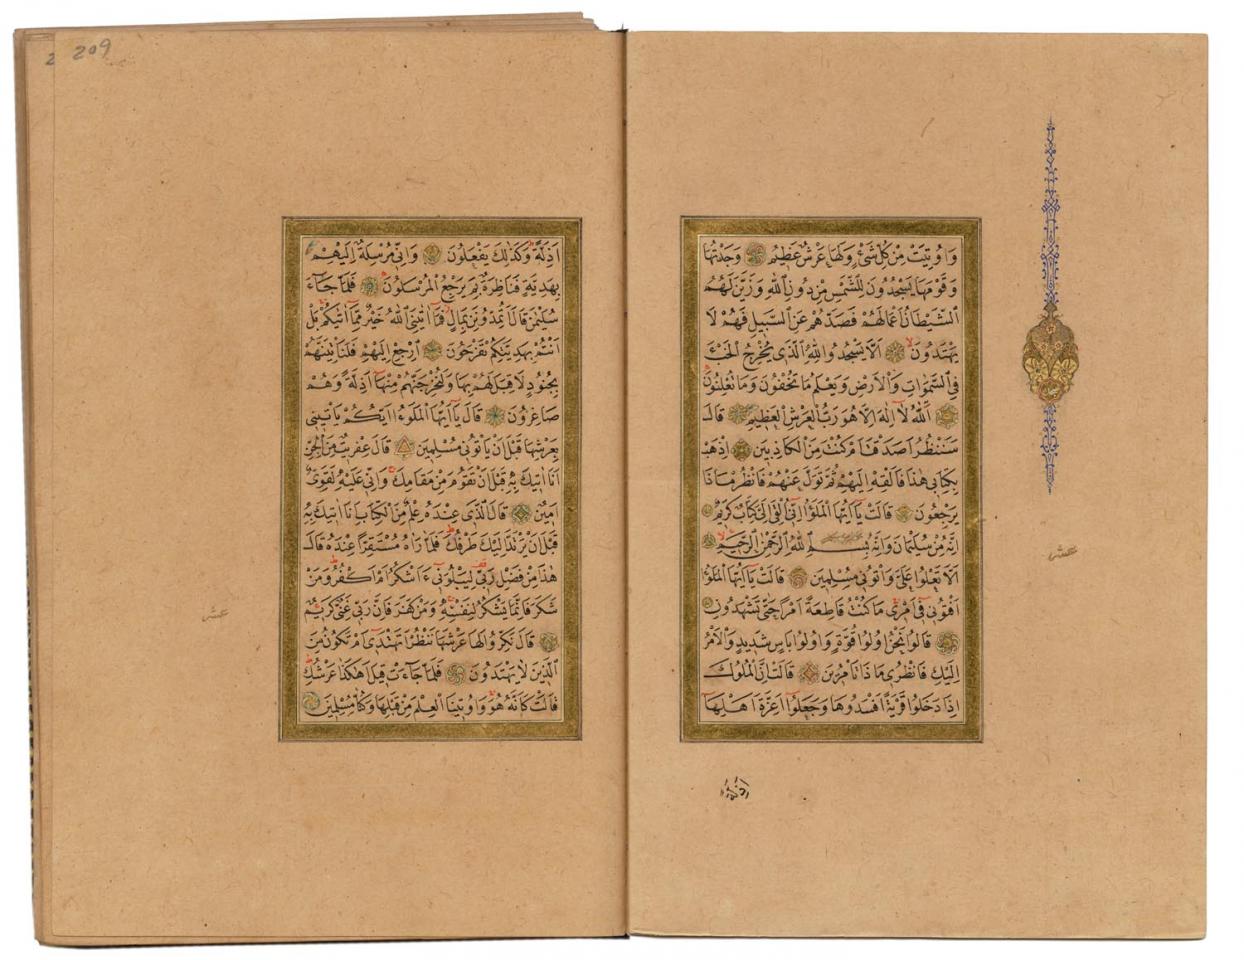 وَاُوتِيَتْ مِنْ كُلِّ شَیْءٍ وَلَهَا عَرْشٌ عَظِيمٌ وَجَدْتُهَا
وَقَوْمَهَا يَسْجُدُونَ لِلشَّمْسِ مِنْ دُونِ اللّٰهِ وَزَيَّنَ لَهُمُ
الشَّيْطَانُ اَعْمَالَهُمْ فَصَدَّهُمْ عَنِ السَّبِيلِ فَهُمْ لَا
يَهْتَدُونَ اَلَّا يَسْجُدُوا لِلّٰهِ الَّذِى يُخْرِجُ الْخَبْءَ
فِى السَّمٰوَاتِ وَالْاَرْضِ وَيَعْلَمُ مَا تُخْفُونَ وَمَا تُعْلِنُونَ
اَللّٰهُ لَا اِلٰهَ اِلَّا هُوَ رَبُّ الْعَرْشِ الْعَظِيمِ قَالَ
سَنَنْظُرُ اَصَدَقْتَ اَمْ كُنْتَ مِنَ الْكَاذِبِينَ اِذْهَبْ
بِكِتَابِى هٰذَا فَاَلْقِهْ اِلَيْهِمْ ثُمَّ تَوَلَّ عَنْهُمْ فَانْظُرْ مَاذَا
يَرْجِعُونَ قَالَتْ يَآ اَيُّهَا الْمَلَؤُا اِنِّى اُلْقِىَ اِلَىَّ كِتَابٌ كَرِيمٌ
اِنَّهُ مِنْ سُلَيْمَانَ وَاِنَّهُ بِسْمِ اللّٰهِ الرَّحْمٰنِ الرَّحِيمِ
اَلَّا تَعْلُوا عَلَىَّ وَاْتُونِى مُسْلِمِينَ قَالَتْ يَآ اَيُّهَا الْمَلَؤُا
اَفْتُونِى فِى اَمْرِى مَا كُنْتُ قَاطِعَةً اَمْرًا حَتّٰى تَشْهَدُونِ
قَالُوا نَحْنُ اُولُوا قُوَّةٍ وَاُولُوا بَاْسٍ شَدِيدٍ وَالْاَمْرُ
اِلَيْكِ فَانْظُرِى مَاذَا تَاْمُرِينَ قَالَتْ اِنَّ الْمُلُوكَ
اِذَا دَخَلُوا قَرْيَةً اَفْسَدُوهَا وَجَعَلُوا اَعِزَّةَ اَهْلِهَا
اَذِلَّةً
عشر
209
اَذِلَّةً وَكَذٰلِكَ يَفْعَلُونَ وَاِنِّى مُرْسِلَةٌ اِلَيْهِمْ
بِهَدِيَّةٍ فَنَاظِرَةٌ بِمَ يَرْجِعُ الْمُرْسَلُونَ فَلَمَّا جَآءَ
سُلَيْمٰنَ قَالَ اَتُمِدُّونَنِ بِمَالٍ فَمَآ اٰتٰينِىَ اللّٰهُ خَيْرٌ مِمَّآ اٰتٰيكُمْ بَلْ
اَنْتُمْ بِهَدِيَّتِكُمْ تَفْرَحُونَ اِرْجِعْ اِلَيْهِمْ فَلَنَاْتِيَنَّهُمْ
بِجُنُودٍ لَا قِبَلَ لَهُمْ بِهَا وَلَنُخْرِجَنَّهُمْ مِنْهَآ اَذِلَّةً وَهُمْ
صَاغِرُونَ قَالَ يَآ اَيُّهَا الْمَلَؤُا اَيُّكُمْ يَاْتِينِى
بِعَرْشِهَا قَبْلَ اَنْ يَاْتُونِى مُسْلِمِينَ قَالَ عِفْرِيتٌ مِنَ الْجِنِّ
اَنَا اٰتِيكَ بِهِ قَبْلَ اَنْ تَقُومَ مِنْ مَقَامِكَ وَاِنِّى عَلَيْهِ لَقَوِىٌّ
اَمِينٌ قَالَ الَّذِى عِنْدَهُ عِلْمٌ مِنَ الْكِتَابِ اَنَا اٰتِيكَ بِهِ
قَبْلَ اَنْ يَرْتَدَّ اِلَيْكَ طَرْفُكَ فَلَمَّا رَاٰهُ مُسْتَقِرًّا عِنْدَهُ قَالَ
هٰذَا مِنْ فَضْلِ رَبِّى لِيَبْلُوَنِى ءَاَشْكُرُ اَمْ اَكْفُرُ وَمَنْ
شَكَرَ فَاِنَّمَا يَشْكُرُ لِنَفْسِهِ وَمَنْ كَفَرَ فَاِنَّ رَبِّى غَنِىٌّ كَرِيمٌ
قَالَ نَكِّرُوا لَهَا عَرْشَهَا نَنْظُرْ اَتَهْتَدِى اَمْ تَكُونُ مِنَ
الَّذِينَ لَا يَهْتَدُونَ فَلَمَّا جَآءَتْ قِيلَ اَهٰكَذَا عَرْشُكِ
قَالَتْ كَاَنَّهُ هُوَ وَاُوتِينَا الْعِلْمَ مِنْ قَبْلِهَا وَكُنَّا مُسْلِمِينَ
عشر